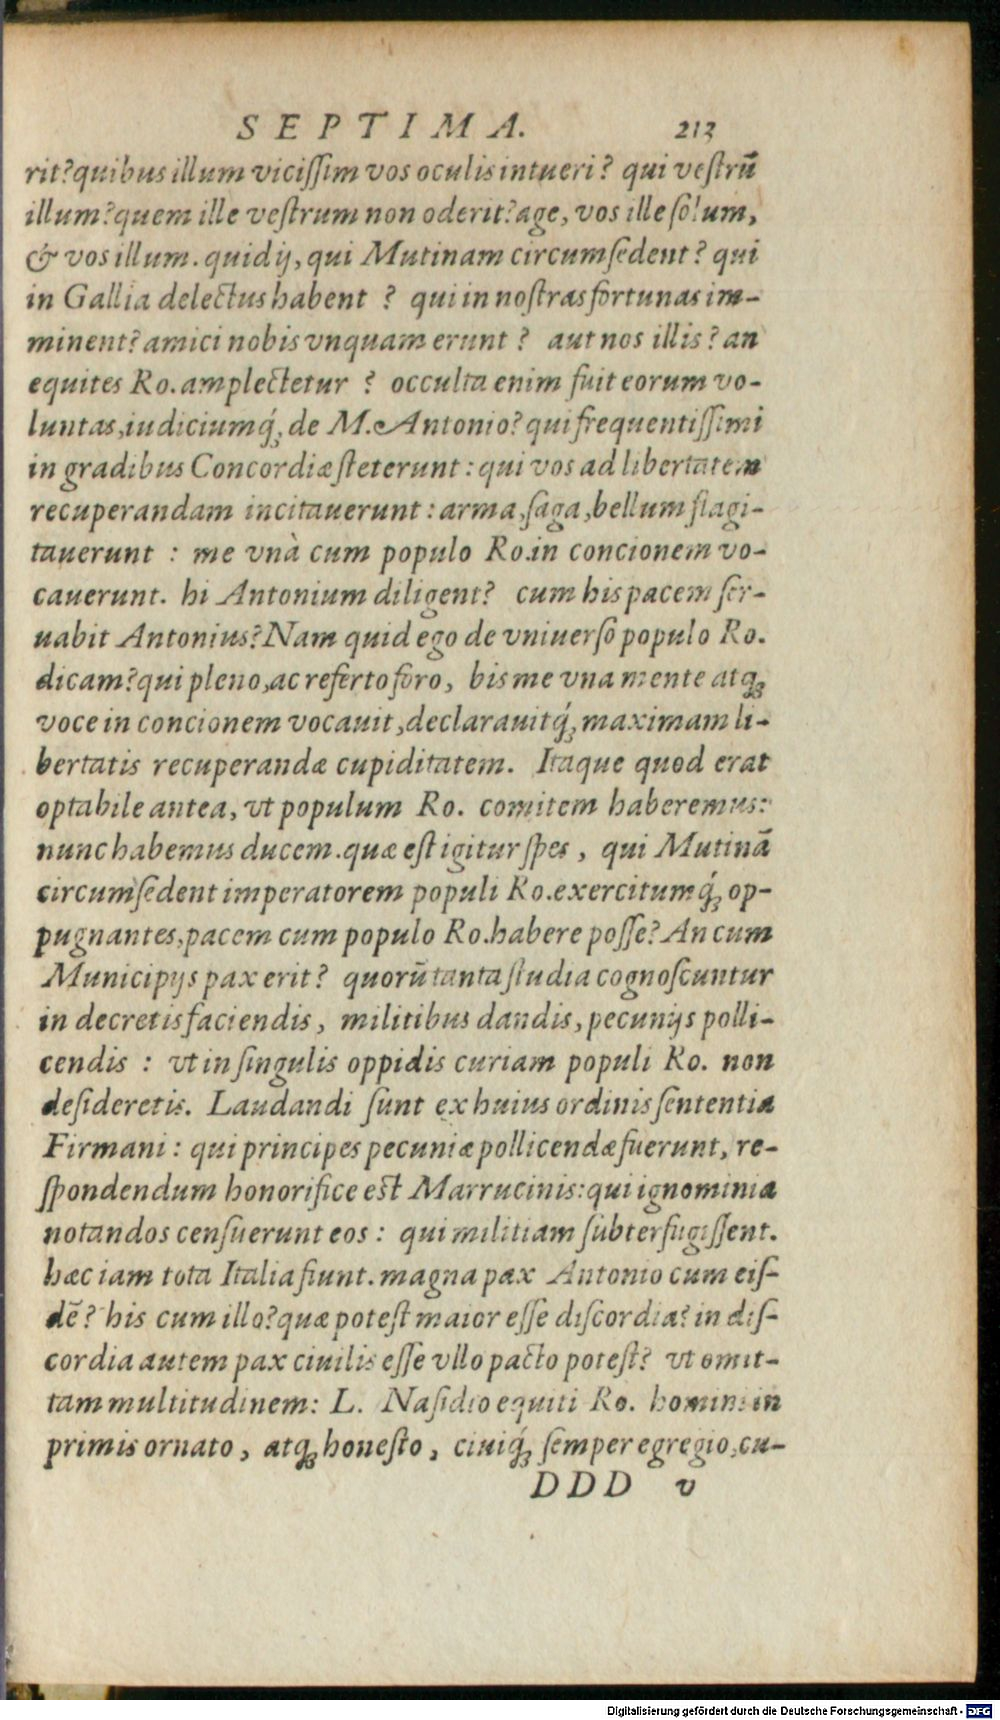 SEPTIMA. 213
rit?quibus illum viciſſim vos oculis intueri? qui veſtrũ
illum?quem ille veſtrum non oderit?age, vos ille ſolum,
& vos illum. quid ij, qui Mutinam circumſedent? qui
in Gallia delectus habent ? qui in noſtras fortunas im-
minent? amici nobis vnquam erunt ? aut nos illis? an
equites Ro. amplectetur ? occulta enim fuit eorum vo-
luntas, iudiciumq́; de M. Antonio? qui frequentiſſimi
in gradibus Concordiæ ſteterunt: qui vos ad libertatem
recuperandam incitauerunt: arma, ſaga, bellum flagi-
tauerunt : me vnà cum populo Ro.in concionem vo-
cauerunt. hi Antonium diligent? cum his pacem ſer-
uabit Antonius? Nam quid ego de vniuerſo populo Ro.
dicam? qui pleno, ac referto foro, bis me vna mente atq;
voce in concionem vocauit, declarauitq́; maximam li-
bertatis recuperandæ cupiditatem. Itaque quod erat
optabile antea, vt populum Ro. comitem haberemus:
nunc habemus ducem. quæ eſt igitur ſpes, qui Mutinã
circumſedent imperatorem populi Ro.exercitumq́; op-
pugnantes, pacem cum populo Ro.habere poſſe? An cum
Municipijs pax erit? quorũ tanta ſtudia cognoſcuntur
in decretis faciendis, militibus dandis, pecunijs polli-
cendis : vt in ſingulis oppidis curiam populi Ro. non
deſideretis. Laudandi ſunt ex huius ordinis ſententia
Firmani: qui principes pecuniæ pollicendæ fuerunt, re-
ſpondendum honorifice eſt Marrucinis: qui ignominia
notandos cenſuerunt eos: qui militiam ſubterfugiſſent.
hæc iam tota Italia fiunt. magna pax Antonio cum eiſ-
dẽ? his cum illo? quæ poteſt maior eſſe diſcordia? in diſ-
cordia autem pax ciuilis eſſe vllo pacto poteſt? vt omit-
tam multitudinem: L. Naſidio equiti Ro. homini in
primis ornato, atq; honeſto, ciuiq́; ſemper egregio, cu-
DDD v
Digitalisierung gefördert durch die Deutsche Forschungsgemeinschaft - DFG